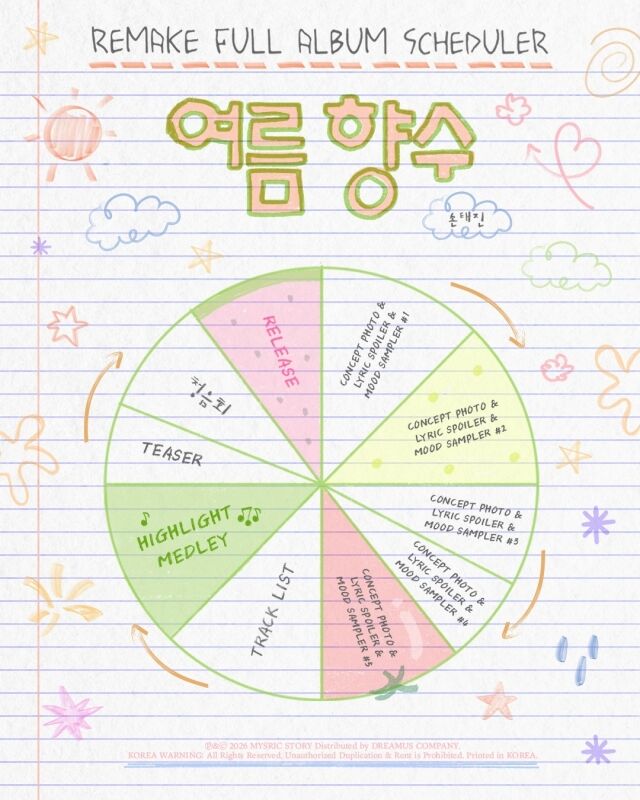 REMAKE FULL ALBUM SCHEDULER
여름 향수
손태진
CONCEPT PHOTO &
LYRIC SPOILER &
MOOD SAMPLER #1
CONCEPT PHOTO &
LYRIC SPOILER &
MOOD SAMPLER #2
CONCEPT PHOTO &
LYRIC SPOILER &
MOOD SAMPLER #3
CONCEPT PHOTO &
LYRIC SPOILER &
MOOD SAMPLER #4
CONCEPT PHOTO &
LYRIC SPOILER &
MOOD SAMPLER #5
TRACK LIST
HIGHLIGHT
MEDLEY
TEASER
청음회
RELEASE
℗&© 2026 MYSRIC STORY Distributed by DREAMUS COMPANY.
KOREA WARNING: All Rights Reserved. Unauthorized Duplication & Rent is Prohibited. Printed in KOREA.